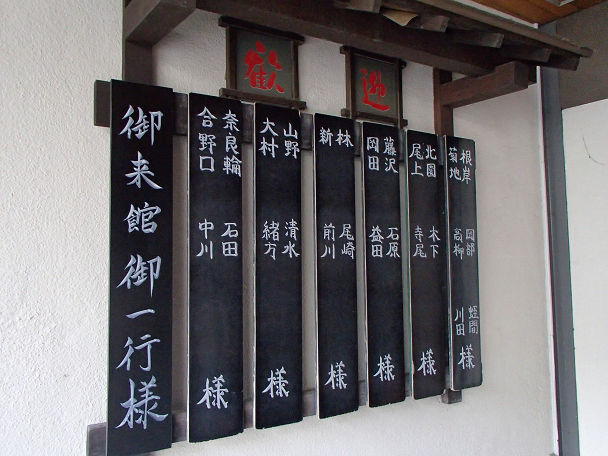 歓迎
御来館御一行様
奈良輪
合野口
石田
中川
様
山野
大村
清水
緒方
様
林
新
尾崎
前川
様
藤沢
岡田
石原
益田
様
北園
尾上
木下
寺尾
様
根岸
菊地
岡部
髙柳
蛭間
川田
様